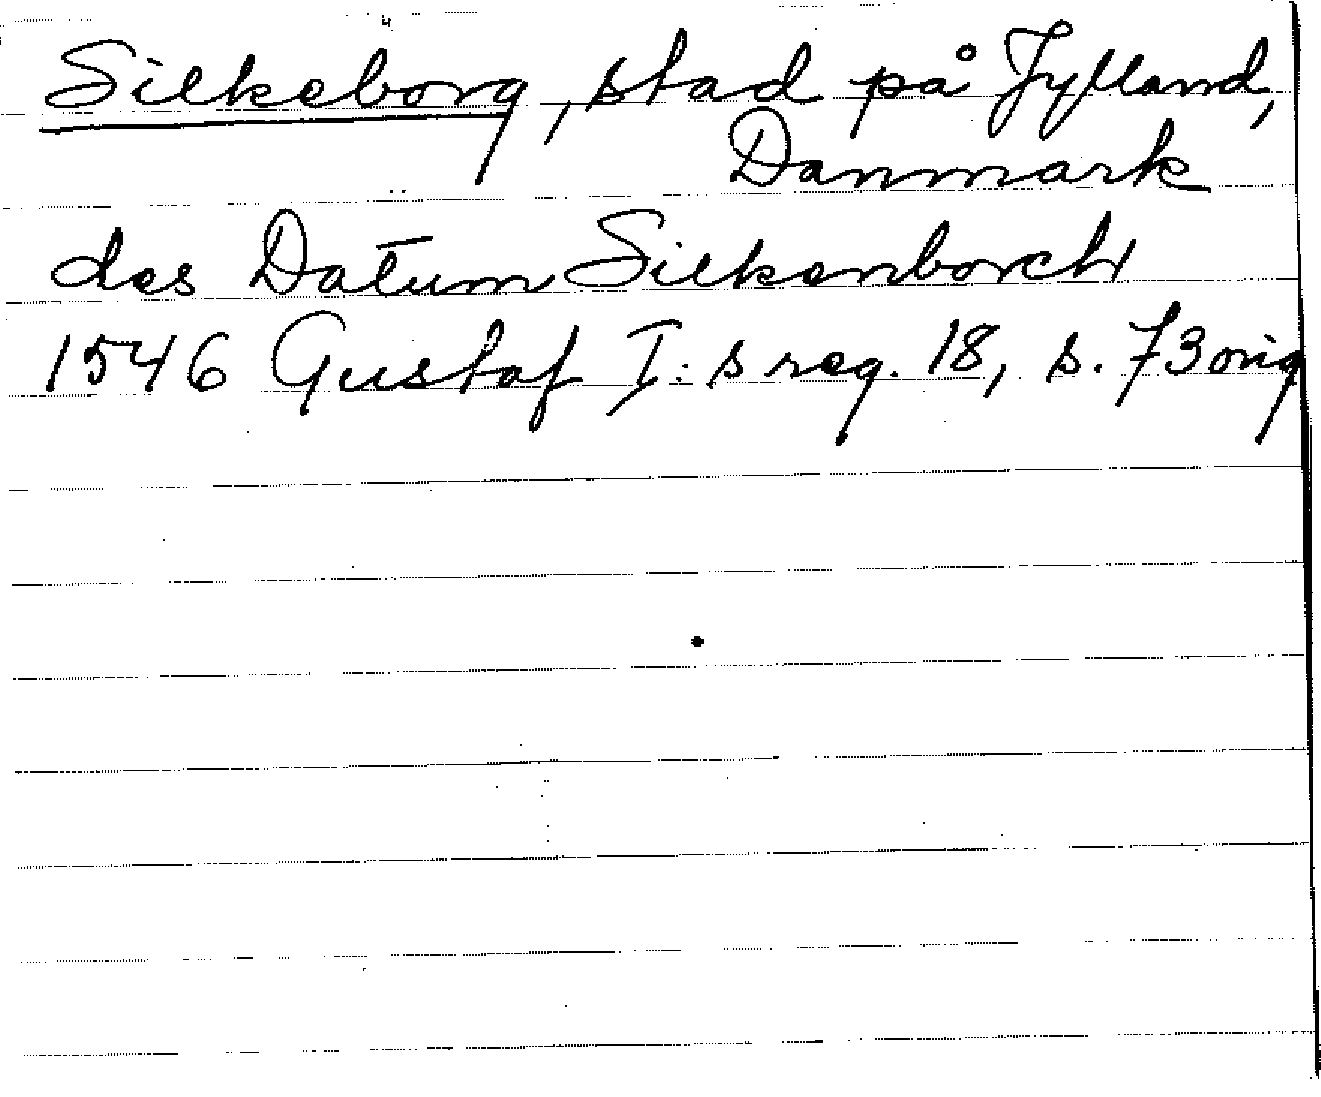 Silkeborg, stad på Jylland,
Danmark
des Datum Silkenborch
1546 Gustaf I:s reg. 18, s. 73 orig